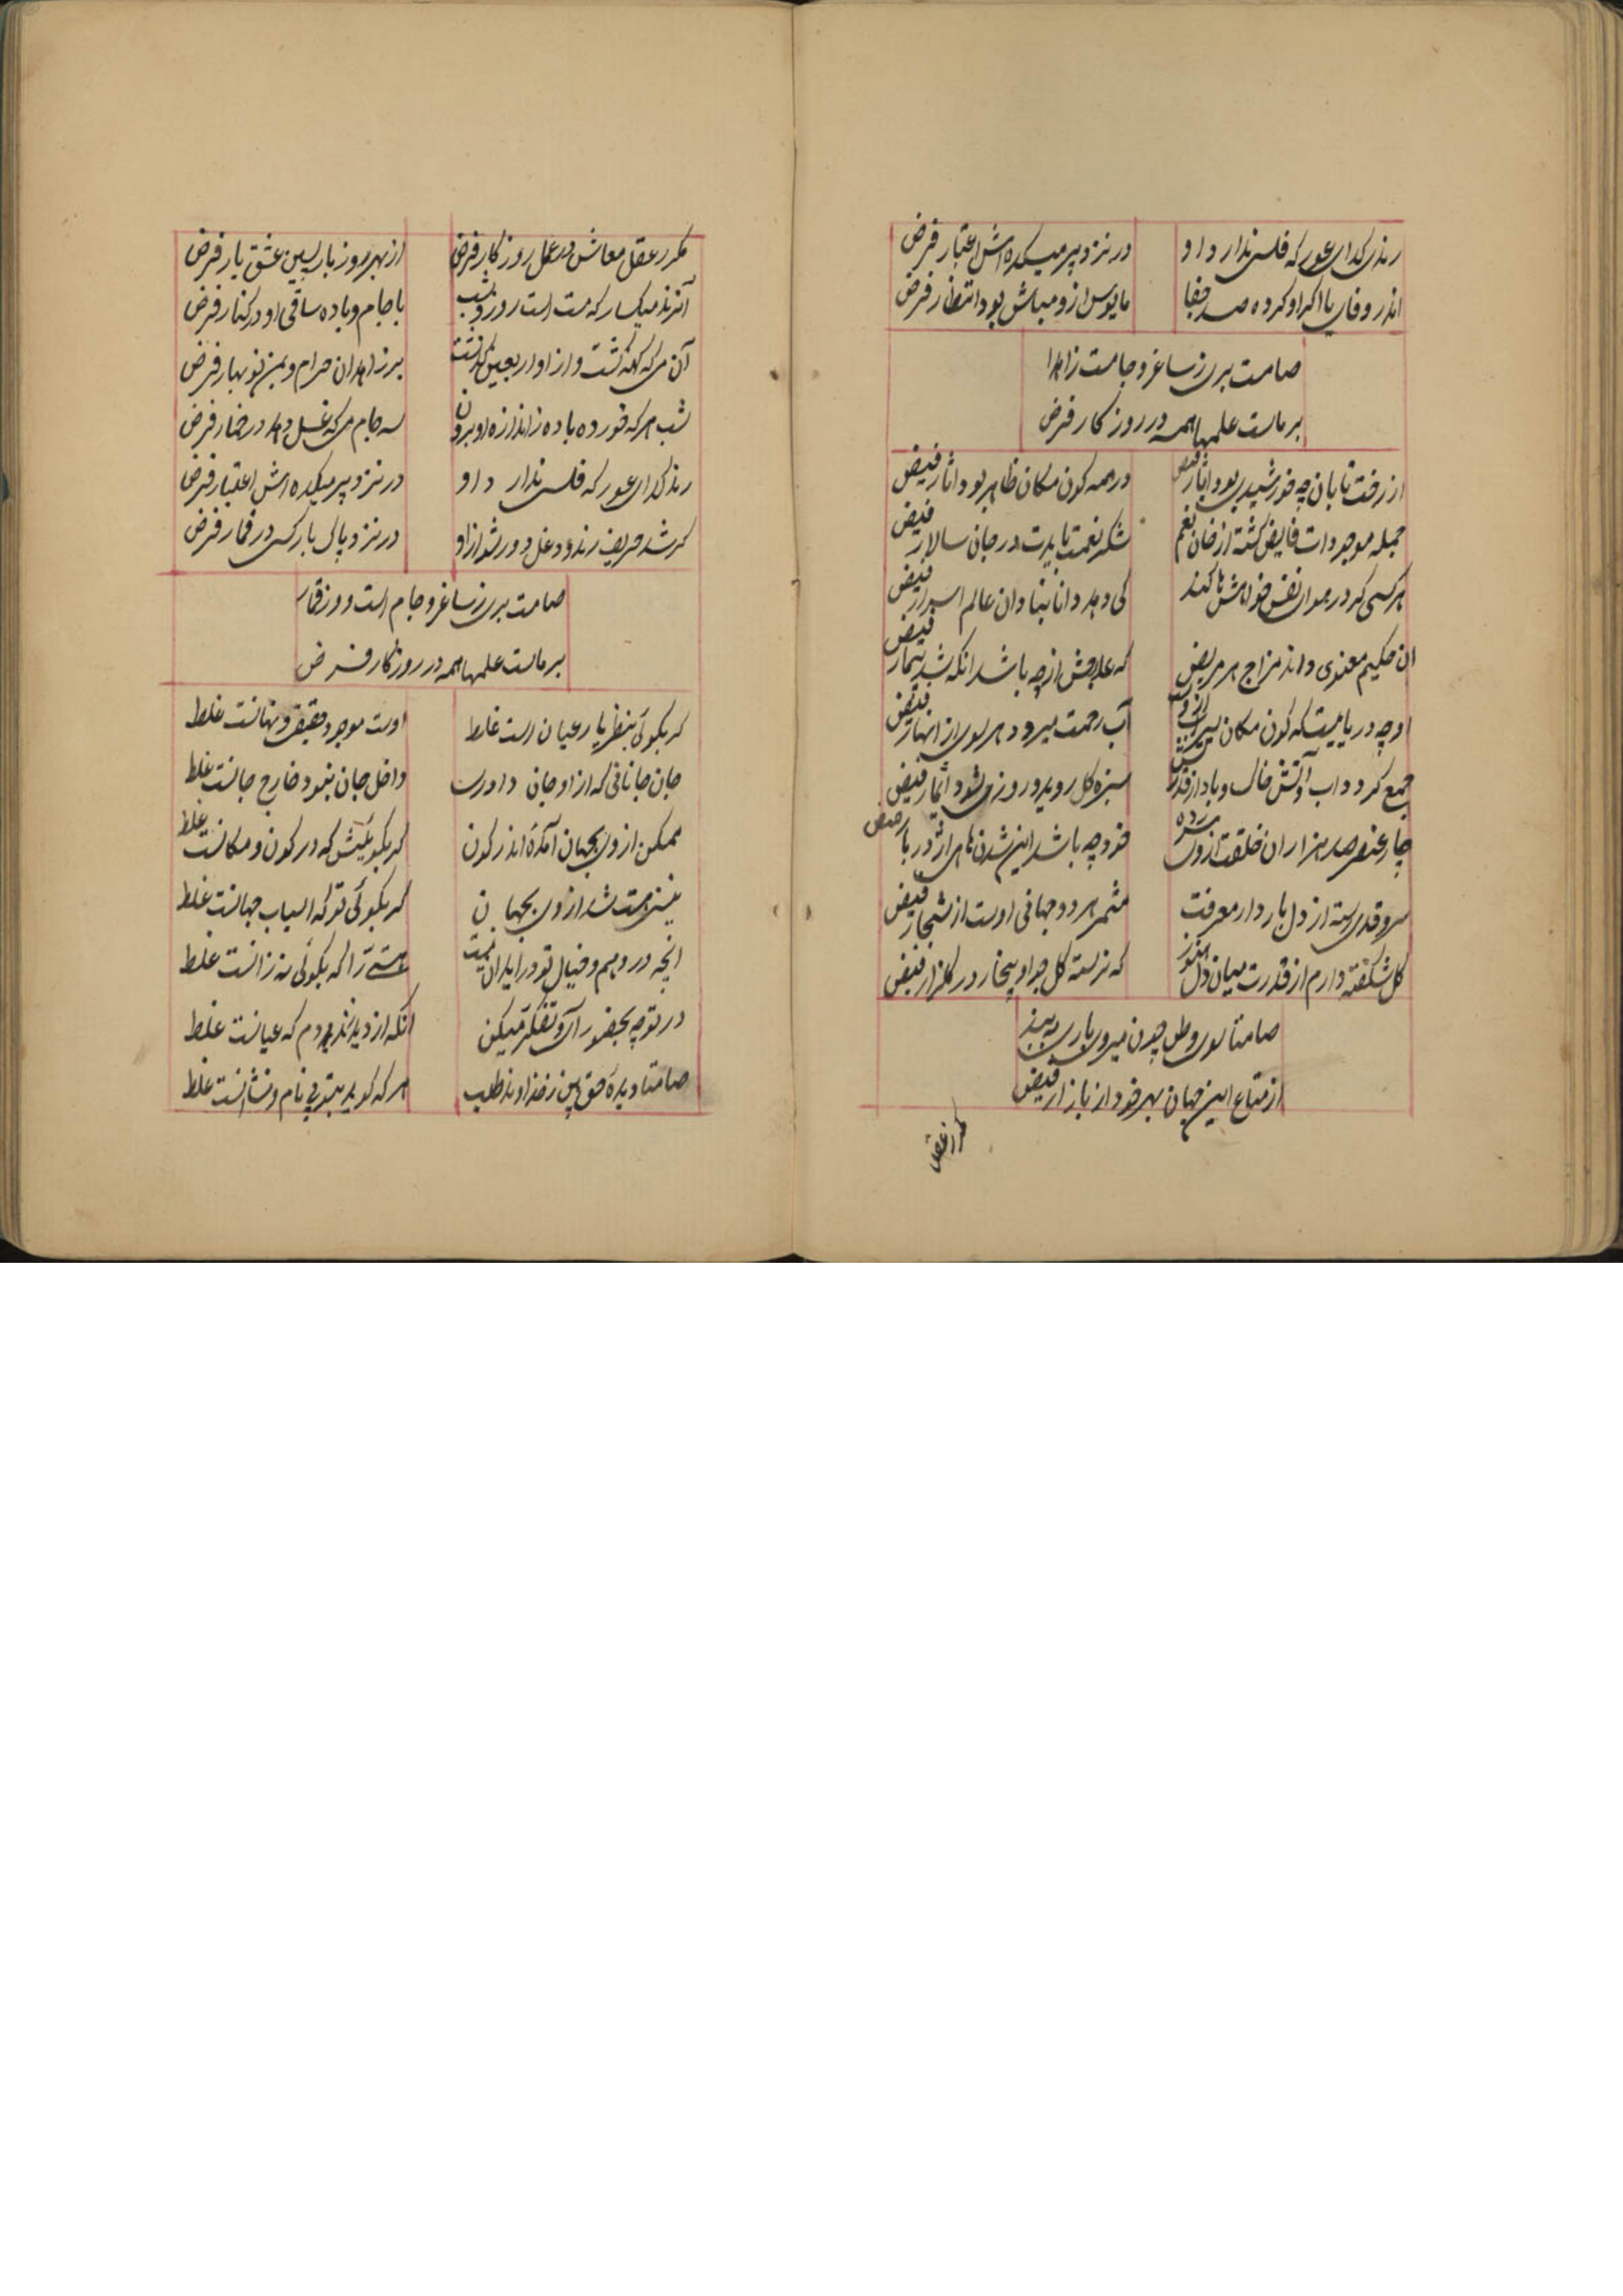 رندی گدای عور که فلسی ندارد او
در نزد پیر میکده اش اعتبار فرض
اندر وفای با اگر او کرده صد جفا
مایوس ازو مباش بود انتظار فرض
صامت بری ز ساغر و جامست زاهدا
بر ماست علمها همه در روزگار فرض
از رخت تابان چه خورشیدی بود انثار فیض
در همه کون مکان ظاهر بود اثار فیض
جمله موجودات فایض گشته از خان نعم
شکر نعمت بایدت در جان سالار فیض
هر کسی کو در هوای نفس خواهش ها کند
کی دهد دانا بنادان عالم اسرار فیض
ان حکیم معنوی داند مزاج هر مریض
که علاجش از چه باشد انکه شد بیمار فیض
او چه دریاییست که کون مکان سیراب ازوست
آب رحمت میرود هر سوی از انهار فیض
جمع کرد و اب و آتش خاک و باد از قدرتش
سبزه گل روید و روزی شود اثمار فیض
چار عنصر صد هزاران خلقت ازوی شده
خود چه باشد این شدن ها از در بار فیض
سرو قدی رسته از دل بار دار معرفت
مثمر هر دو جهانی اوست از شجار فیض
گل شکفته دارم از قدرت میان دل هنوز
که نرسته گل چو او بیخار در گلزار فیض
صامتا سوی وطن چون میروی باری ببند
از متاع این جهان بهر خود از بازار فیض
مگر عقل معاش در عمل روزگار فرض
از بهر روز بازپسین عشق یار فرض
آنرند میگسار که مست است روز و شب
با جام و باده ساقی او در کنار فرض
آن می که کهنه گشت و از او اربعین گذشت
بر زاهدان حرام و بمن نوبهار فرض
شب هر که خورده باده ز اندازه او برون
سه جام می که غسل دهد در خمار فرض
رند گدای عور که فلسی ندارد او
در نزد پیر میکده اش اعتبار فرض
گر شد حریف رند و دغل دور شو از او
در نزد پاک باز کسی در قمار فرض
صامت بری ز ساغر و جام است و ز قمار
بر ماست علمها همه در روزگار فرض
گر بگوئی بنظر یار عیان است غلط
اوست موجود حقیقی و نهانست غلط
جان جانانی که از او جان دارد
داخل جان نبود خارج جانست غلط
ممکن از وی بجهان آمده اندر کون
گر بگوئیش که در کون و مکانست غلط
نیست هست شد از وی بجهان
گر بگوئی تو که اسباب جهانست غلط
انچه در وهم و خیال تو در اید ان نیست
هستی را که بگوئی نه زانست غلط
در توجه بحضور آی و تفکر میکن
انکه از دید نه مردم که عیانست غلط
صامتا دیده حق بین ز خداوند طلب
هر که گوید بتو بی نام و نشانست غلط